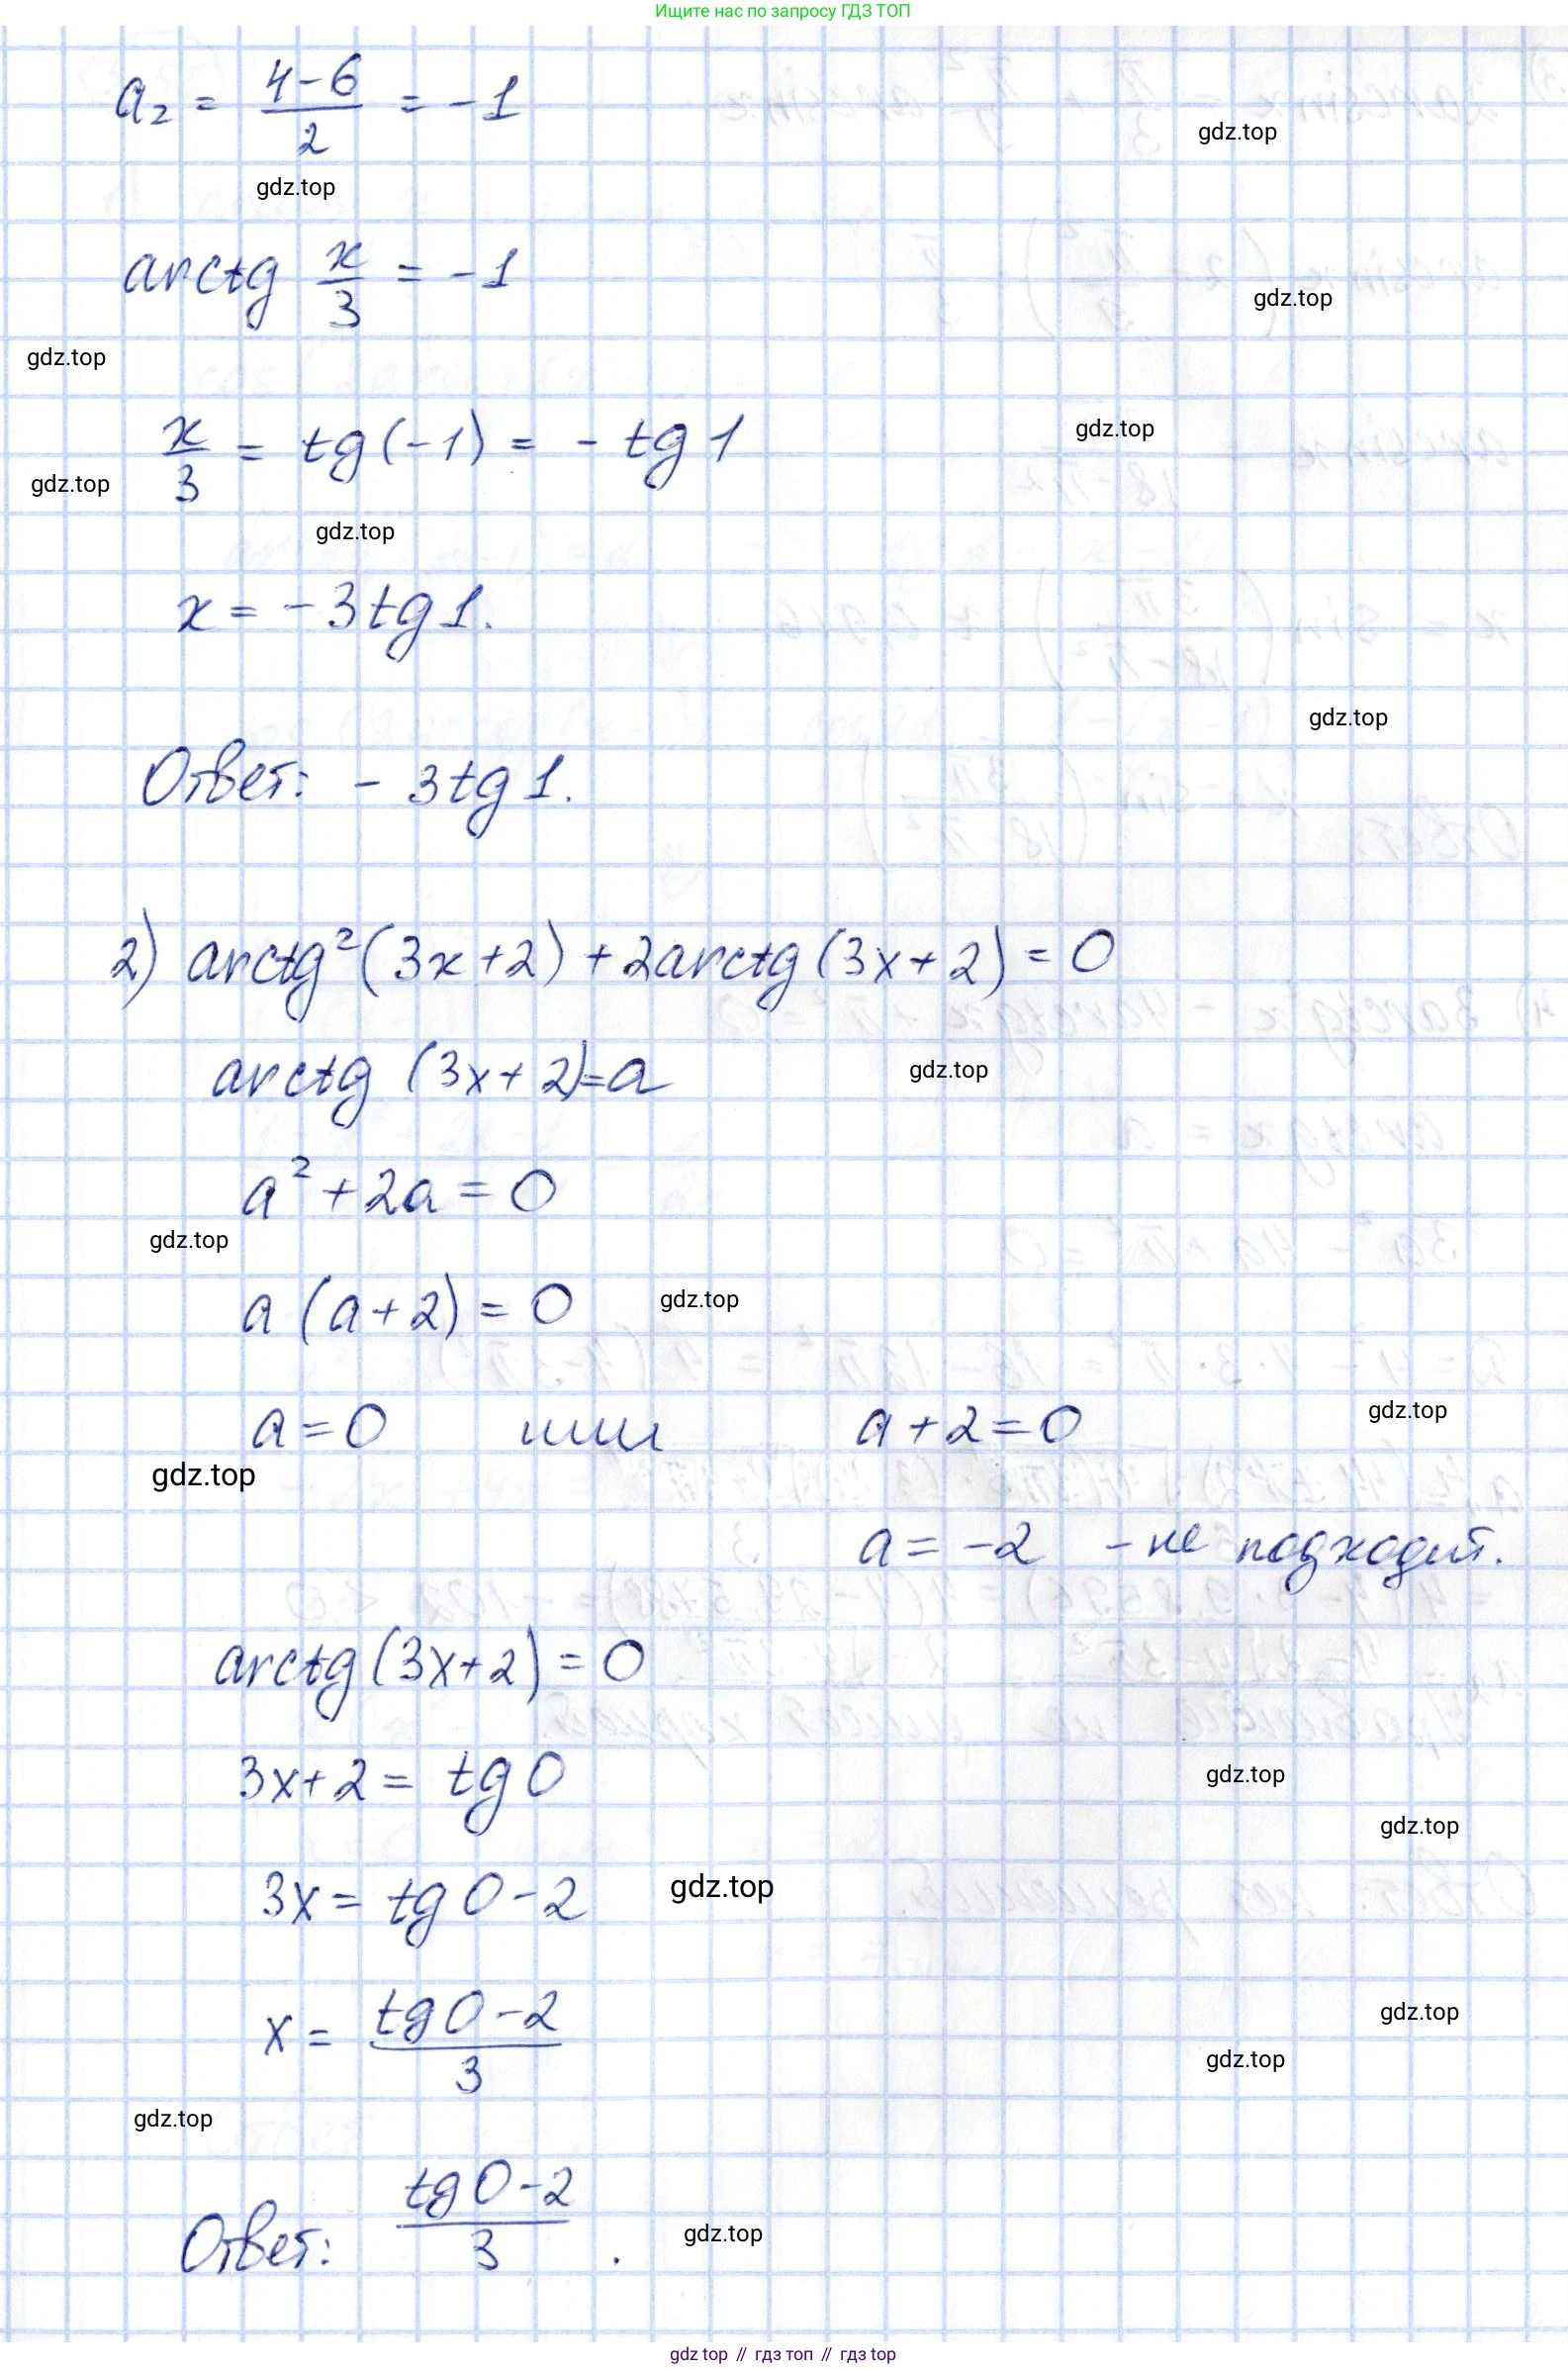 Ищите нас по запросу ГДЗ ТОП
a₂ = (4-6)/2 = -1
gdz.top
gdz.top
arctg x/3 = -1
gdz.top
gdz.top
x/3 = tg(-1) = - tg 1
gdz.top
gdz.top
gdz.top
x = -3tg1.
gdz.top
Ответ: - 3tg1.
2) arctg²(3x+2) + 2arctg(3x+2) = 0
arctg (3x+2)=a
gdz.top
a² + 2a = 0
gdz.top
a (a+2) = 0
gdz.top
a = 0 или a+2=0
gdz.top
gdz.top
a = -2 - не подходит.
arctg(3x+2) = 0
3x+2 = tg 0
gdz.top
gdz.top
3x = tg 0 - 2
gdz.top
x = (tg 0 - 2)/3
gdz.top
gdz.top
gdz.top
Ответ: (tg 0 - 2)/3 .
gdz.top
gdz.top // гдз топ // гдз top